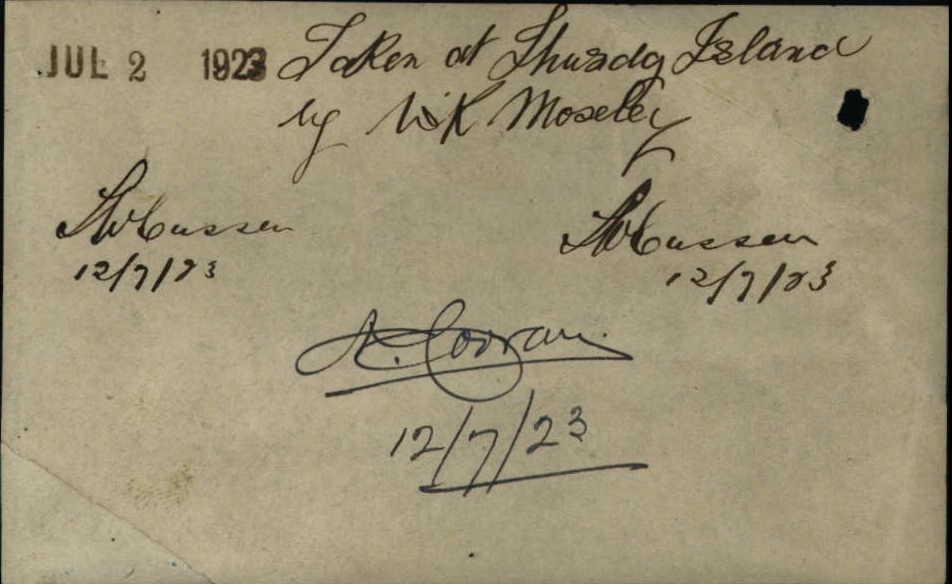 JUL 2 1923 Taken at Thursdy Island
by Moseley
Cussen Cussen
12/7/23 12/7/23
A.
12/7/23